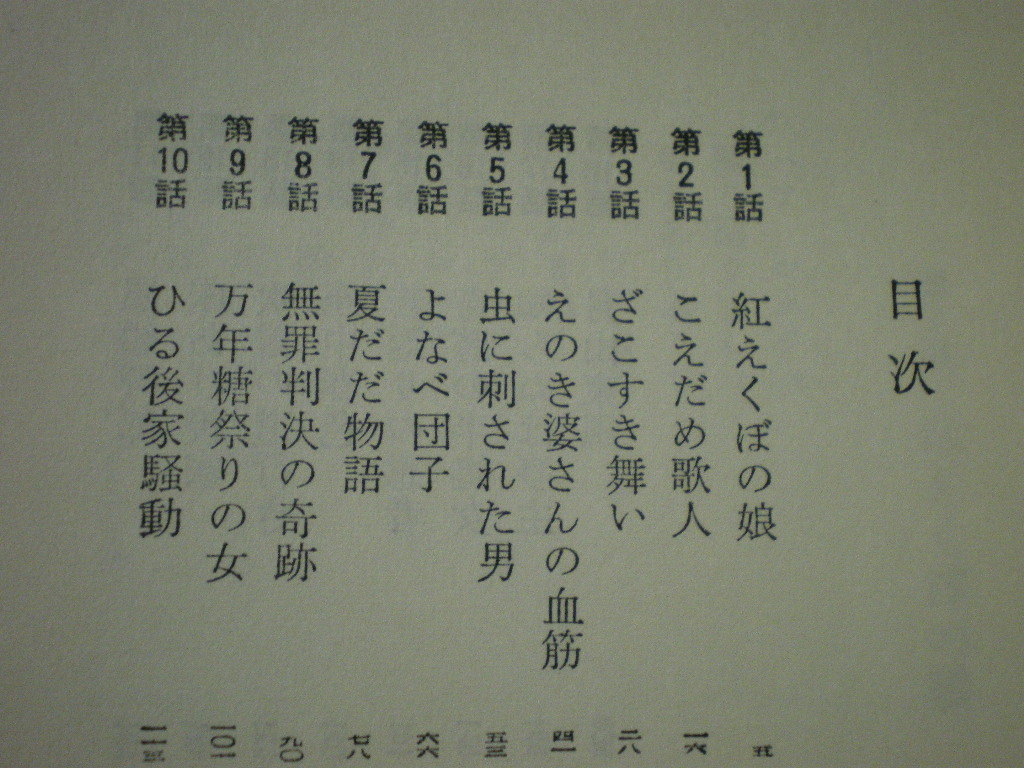 目次
第1話 紅えくぼの娘 五
第2話 こえだめ歌人 一六
第3話 ざこすき舞い 二八
第4話 えのき婆さんの血筋 四一
第5話 虫に刺された男 五三
第6話 よなべ団子 六六
第7話 夏だだ物語 七八
第8話 無罪判決の奇跡 九〇
第9話 万年糖祭りの女 一〇一
第10話 ひる後家騒動 一一三